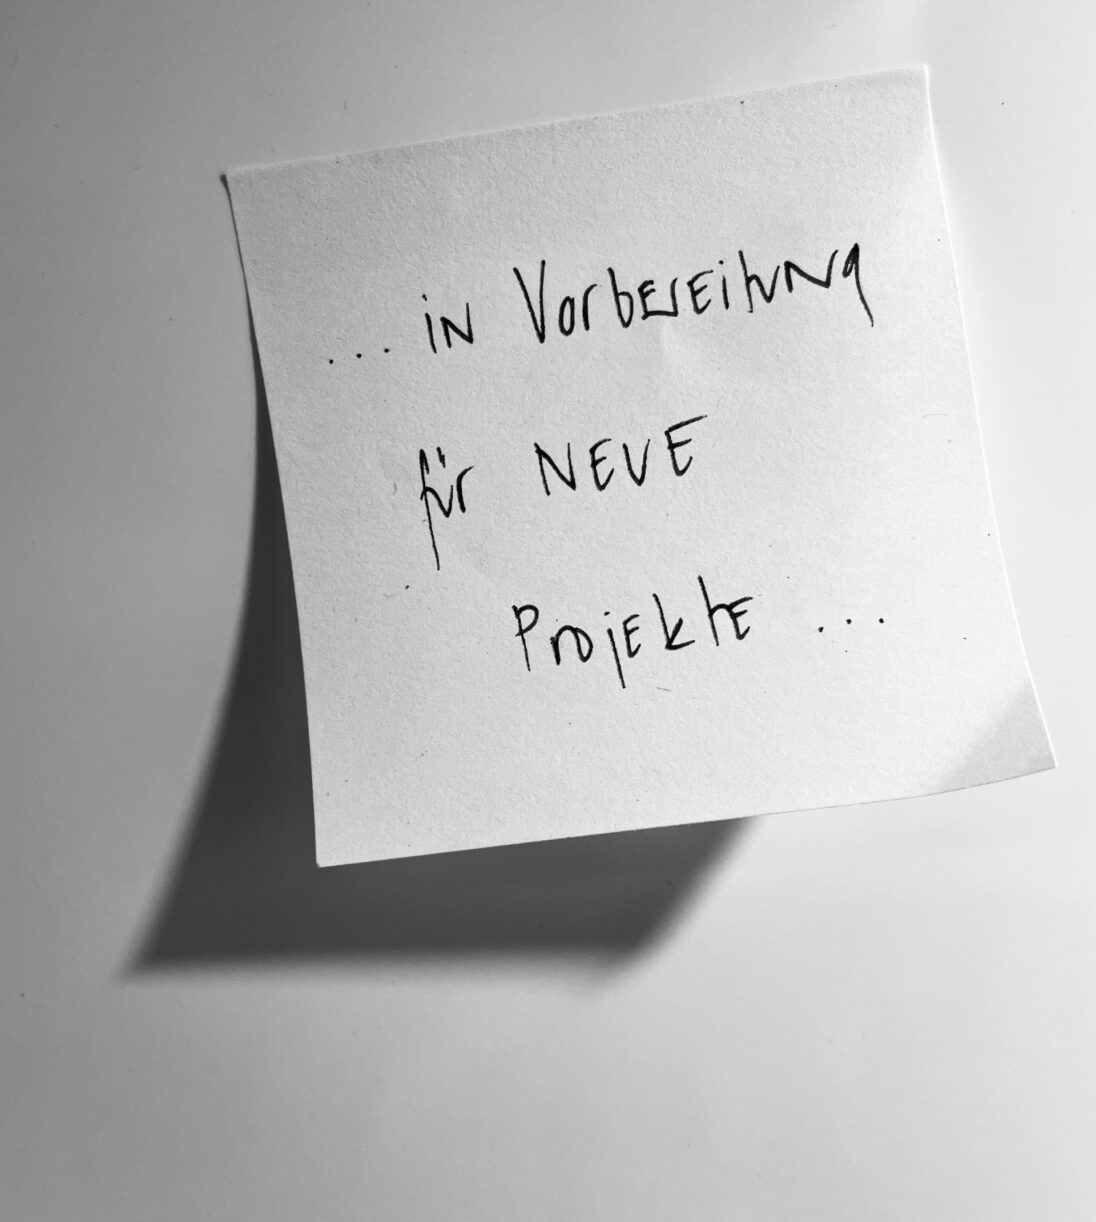 ... in Vorbereitung
für NEUE
Projekte ...